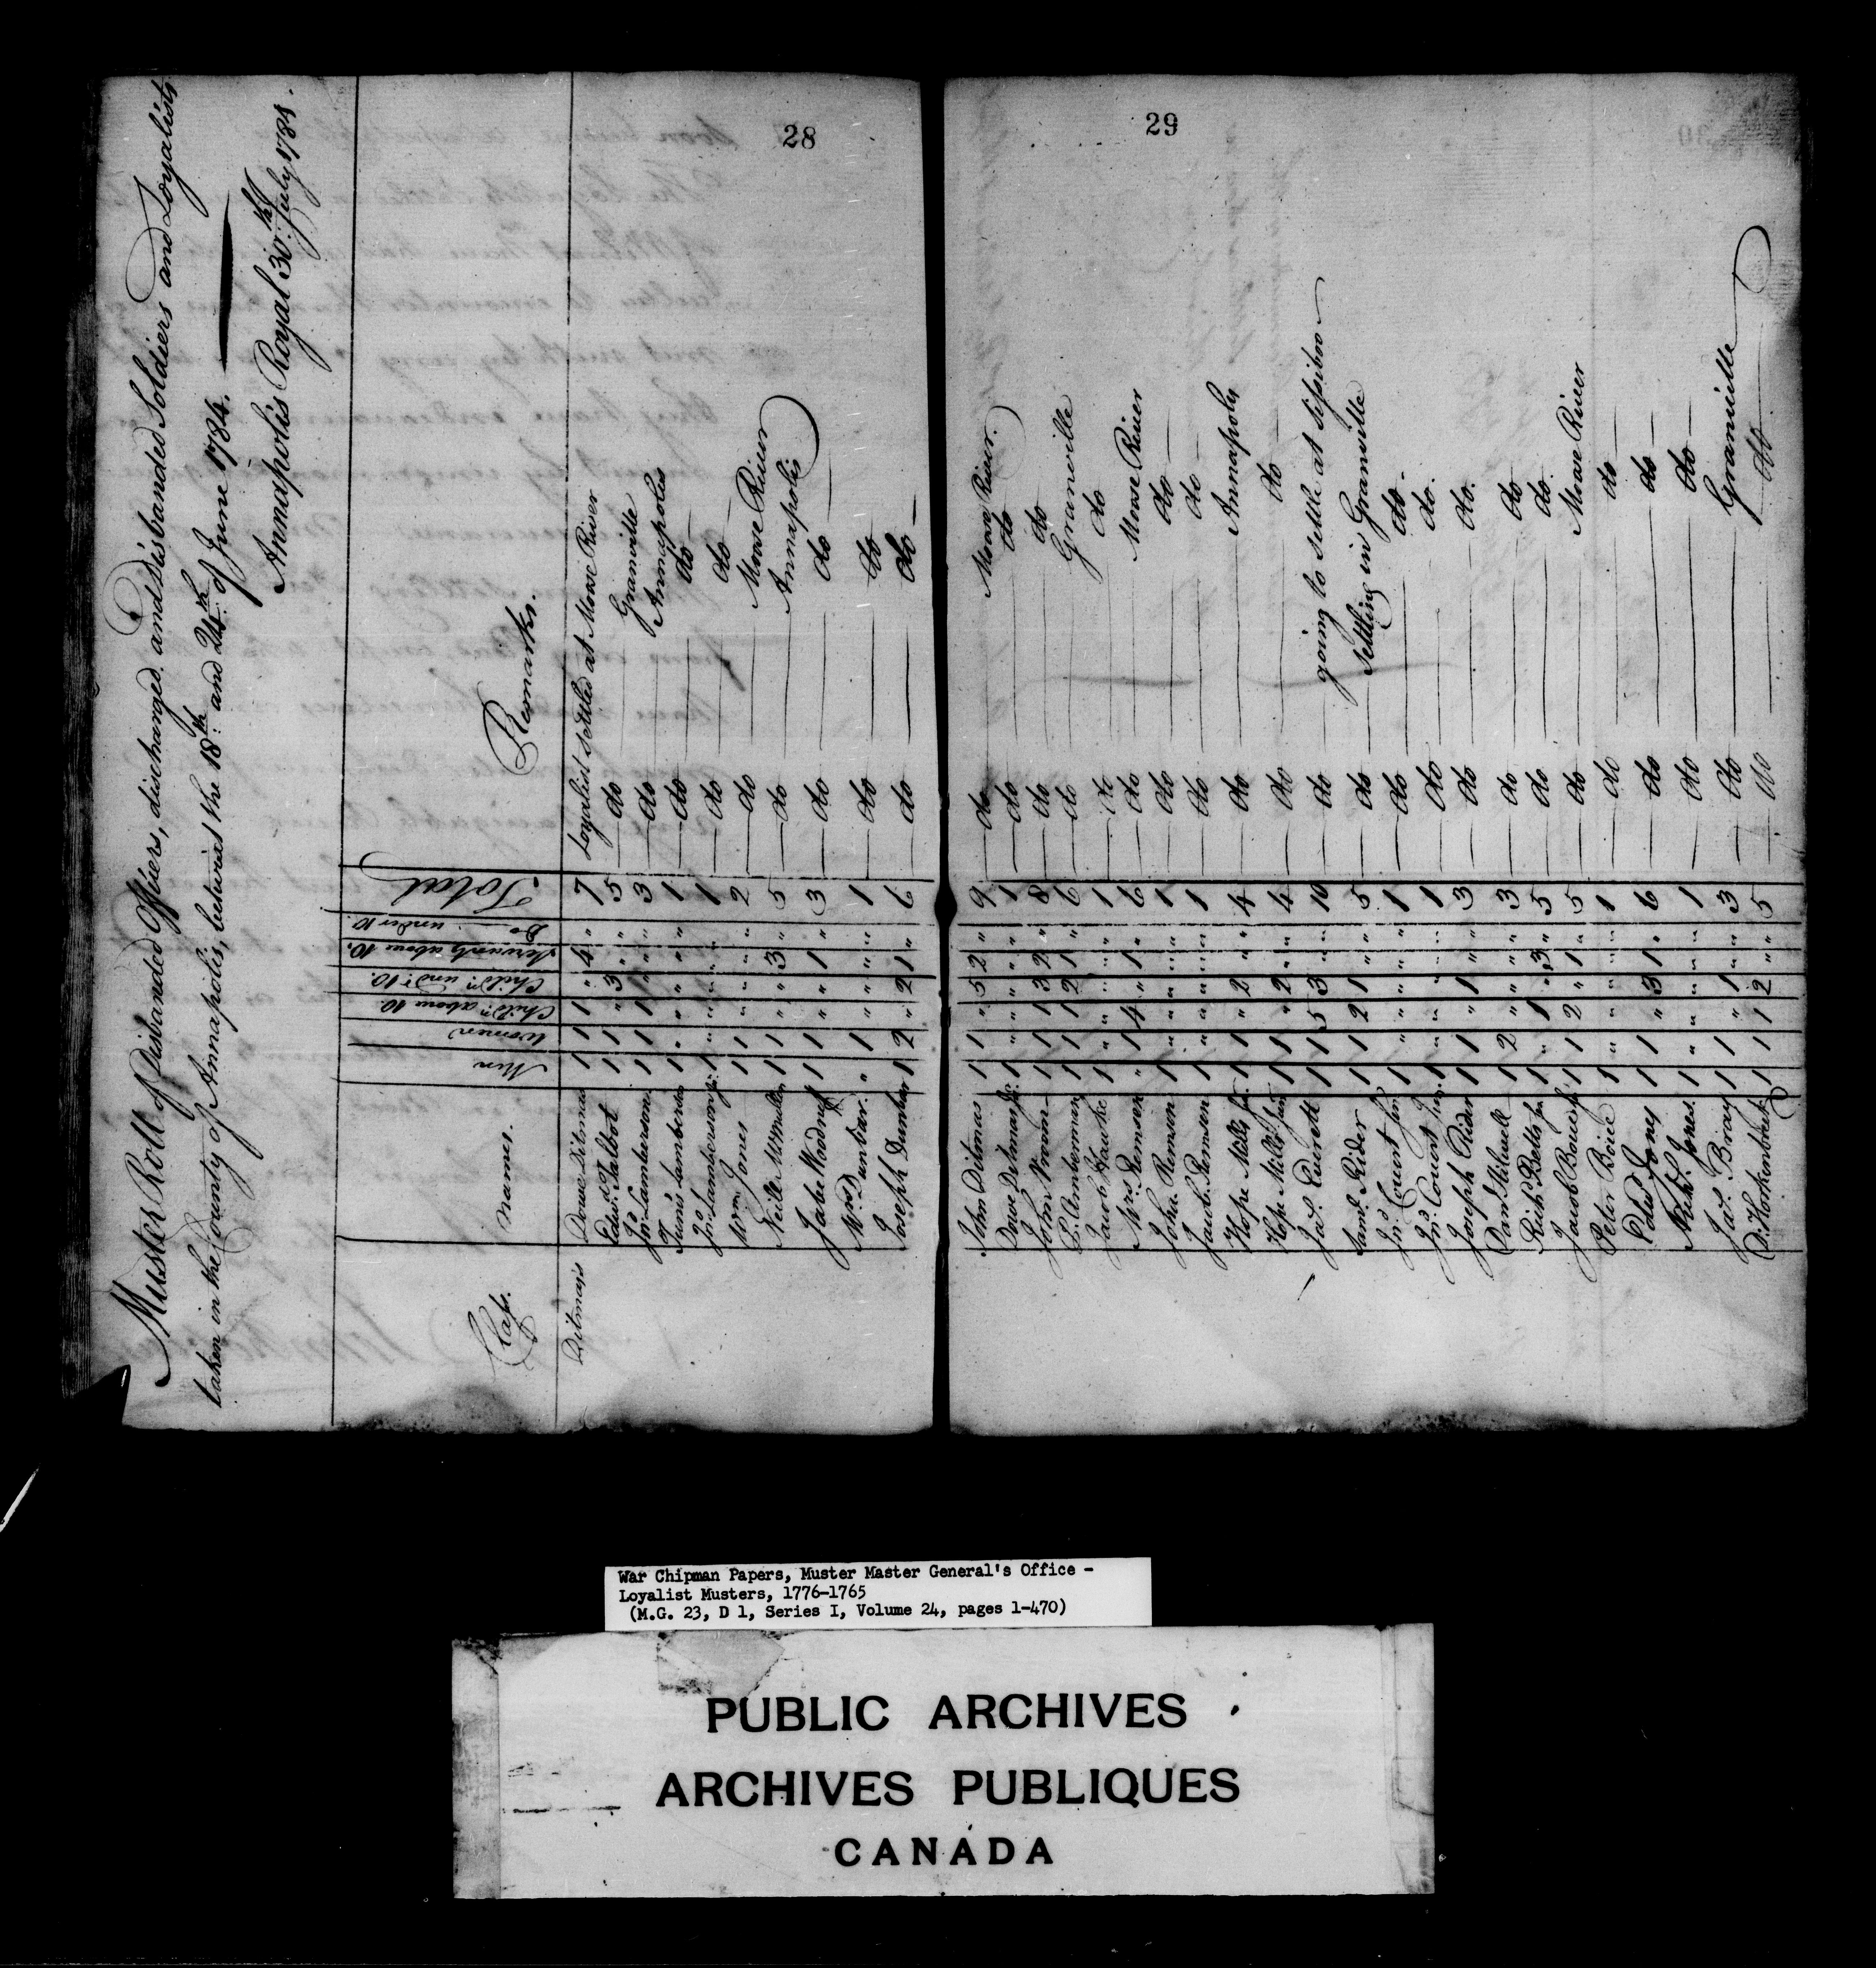 28
Muster Roll of Disbanded Officers, discharged and disbanded Soldiers and Loyalists
taken in the County of Annapolis, between the 18th and 24th of June 1784.
Annapolis Royal 30th July 1784.
Names. Men Women Child.n above 10. Child.n und.r 10. Servants above 10. Do under 10. Total Remarks.
Ditmars
Douwe Ditmars 1 1 1 " 4 " 7 Loyalist settled at Moose River
Edw.d Talbot 1 1 " 3 " " 5 do Granville
Jn.o Lamberson 1 1 1 " " " 3 do Annapolis
Tunis Lamberson 1 " " " " " 1 do do
Jn.o Lamberson Jun. 1 " " " " " 1 do do
Wm Jones 1 1 " " " " 2 do Moose River
Neill McMullen 1 1 " " 3 " 5 do Annapolis
Jabe Woodruff 1 1 " " 1 " 3 do do
Mrs Dunbar. " 1 " " " " 1 do do
Joseph Dunbar 1 2 " 2 1 " 6 do do
29
John Ditmas 1 1 " 5 2 " 9 do Moose River.
Dowe Ditmars Jr. 1 " " " " " 1 do do
John Vroom 1 1 1 3 2 " 8 do do
P. Amberman 1 1 1 2 1 " 6 do Granville
Jacob Hawke 1 " " " " " 1 do do
Mrs. Remsen " 1 4 " 1 " 6 do Moose River
John Remsen 1 " " " " " 1 do do
Jacob Remsen 1 " " " " " 1 do do
Hope Mills Sen. 1 1 " 2 " " 4 do Annapoly
Hope Mills Jun 1 1 " 2 " " 4 do do
Ja.s Everett 1 1 5 3 " " 10 do going to settle at Sissiboo
Sam.l Rider 1 1 2 1 " " 5 do settling in Granville
Jn.o Covert Sen. 1 " " " " " 1 do do.
Jn.o Covert Jun. 1 " " " " " 1 do do.
Joseph Rider 1 1 " 1 " " 3 do do.
Dan.l Stilwell 1 2 " " " " 3 do do
Rich.d Betts Jun 1 " 1 " 3 " 5 do do
Jacob Bouett 1 1 2 " 1 " 5 do Moose River
Peter Boice 1 " " " " " 1 do do
Edw.d Jones 1 1 " 3 1 " 6 do do
Nich.s Jones. 1 " " " " " 1 do do
Ja.s Bray 1 1 " 1 " " 3 do Granville
D. Horkenbrust 1 1 1 2 " " 5 do do
War Chipman Papers, Muster Master General's Office -
Loyalist Musters, 1776-1765
(M.G. 23, D 1, Series I, Volume 24, pages 1-470)
PUBLIC ARCHIVES
ARCHIVES PUBLIQUES
CANADA